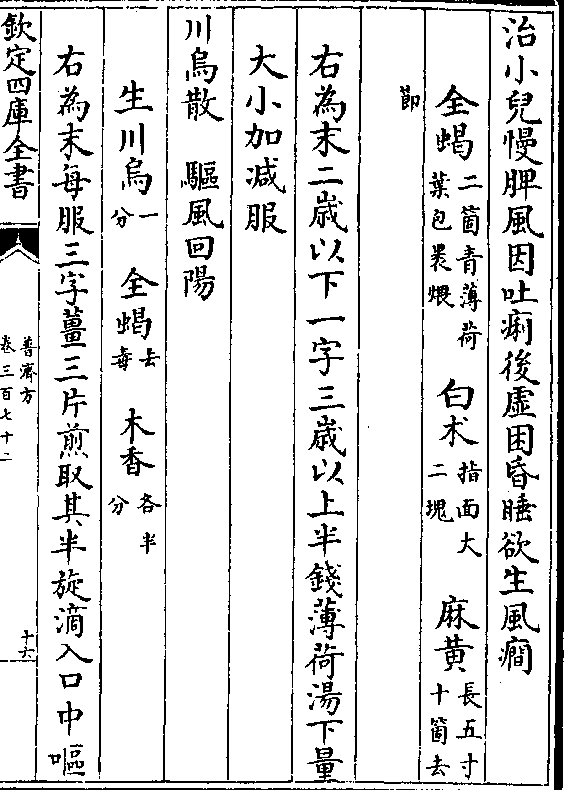 治小兒慢脾風因吐痢後虛困昏睡欲生風癇
全蝎二箇青薄荷葉包裹煨 白朮指面大二塊 麻黄長五寸十箇去
節
右為末二歳以下一字三歳以上半錢薄荷湯下量
大小加減服
川烏散 驅風回陽
生川烏一分 全蝎去毒 木香各半分
右為末每服三字薑三片煎取其半旋滴入口中嘔
欽定四庫全書
普濟方
卷三百七十二
十六